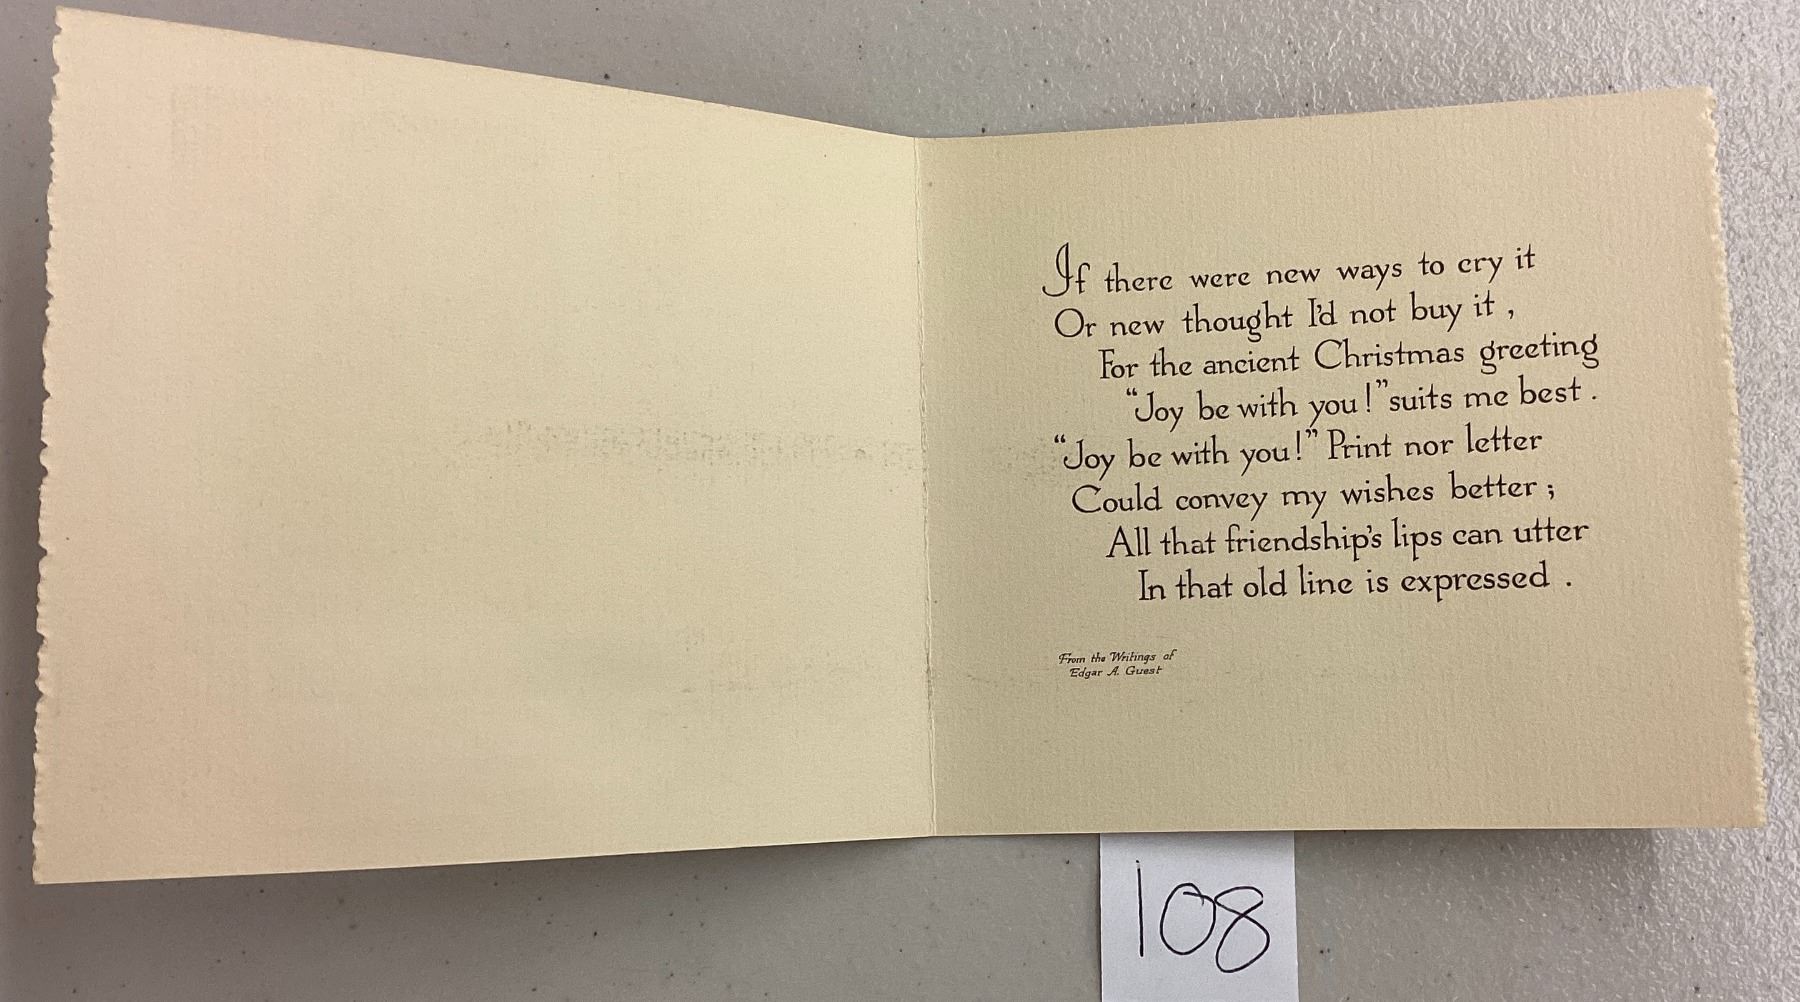 If there were new ways to cry it
Or new thought I'd not buy it ,
For the ancient Christmas greeting
"Joy be with you!" suits me best .
"Joy be with you!" Print nor letter
Could convey my wishes better ;
All that friendship's lips can utter
In that old line is expressed .
From the Writings of
Edgar A. Guest
108